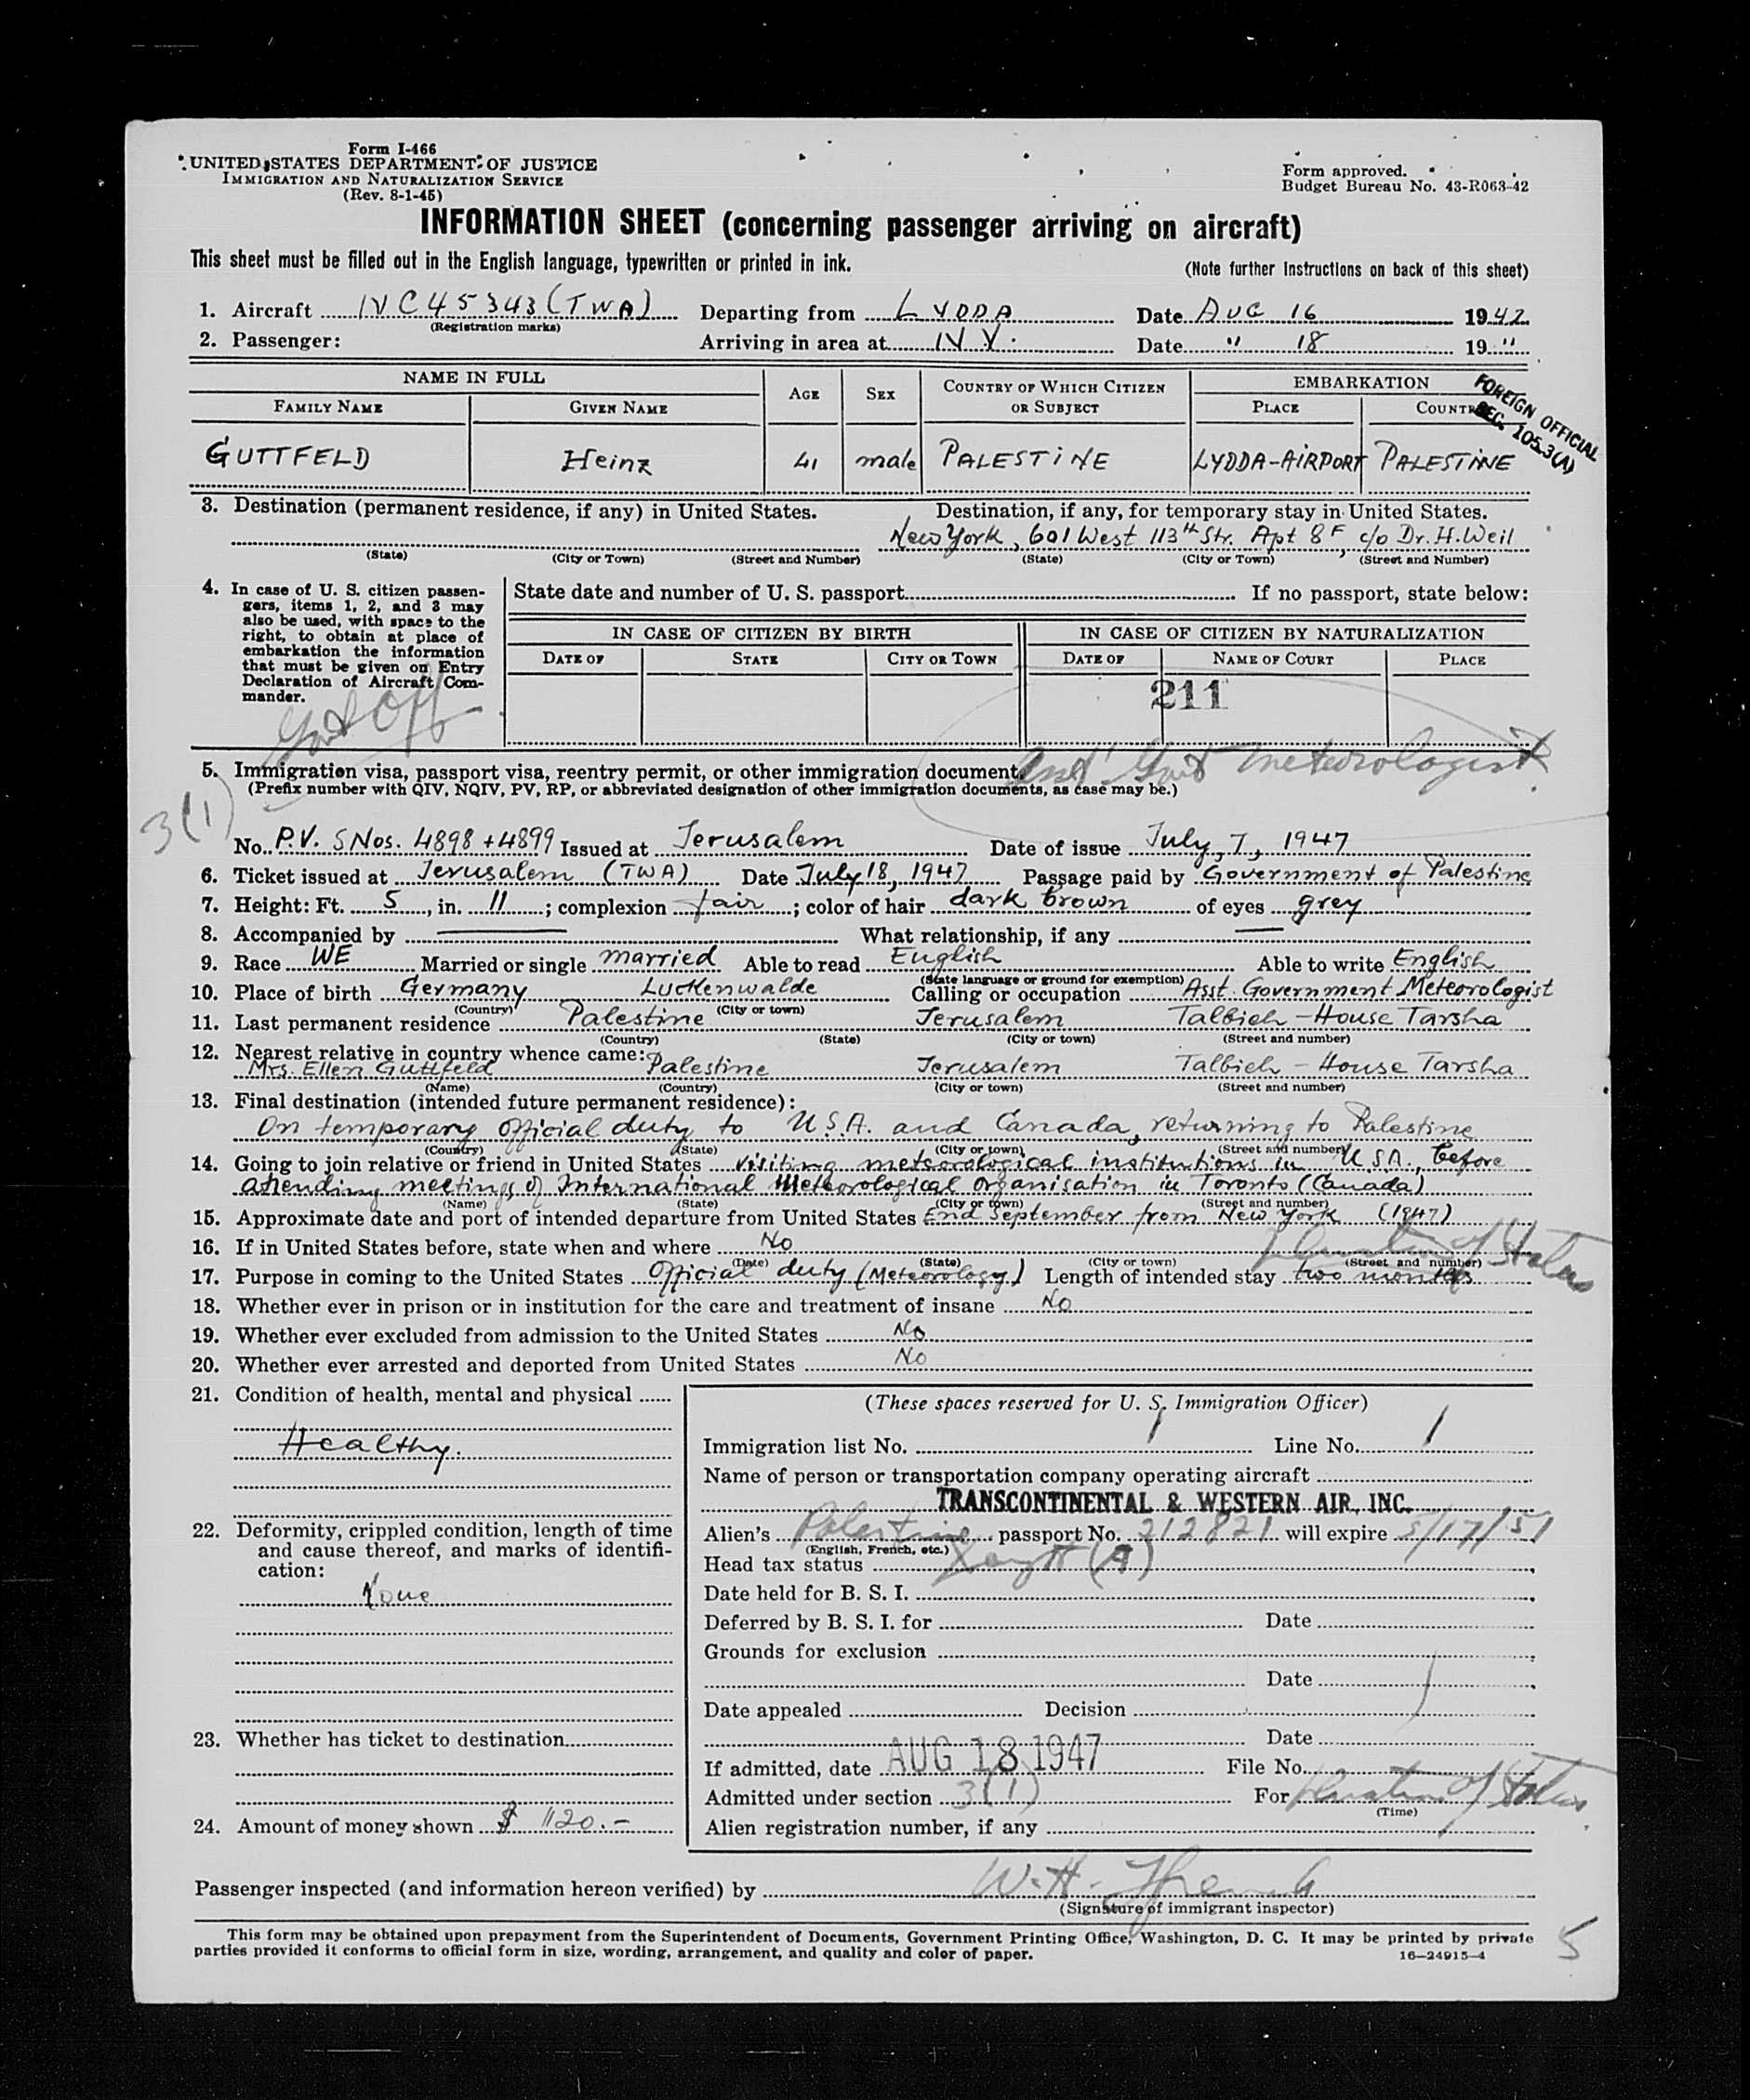 Form I-466
UNITED STATES DEPARTMENT OF JUSTICE
IMMIGRATION AND NATURALIZATION SERVICE
(Rev. 8-1-45)
Form approved.
Budget Bureau No. 43-R063-42
INFORMATION SHEET (concerning passenger arriving on aircraft)
This sheet must be filled out in the English language, typewritten or printed in ink.
(Note further instructions on back of this sheet)
1. Aircraft NC45343 (TWA) Departing from LYDDA Date AUG 16 1942
(Registration marks)
2. Passenger: Arriving in area at N Y. Date " 18 19"
NAME IN FULL AGE SEX COUNTRY OF WHICH CITIZEN OR SUBJECT EMBARKATION
FAMILY NAME GIVEN NAME PLACE COUNTRY
FOREIGN OFFICIAL
SEC. 105.3(A)
GUTTFELD Heinz 41 male PALESTINE LYDDA-AIRPORT PALESTINE
3. Destination (permanent residence, if any) in United States. Destination, if any, for temporary stay in United States.
New York, 601 West 113th Str. Apt 8F, c/o Dr. H. Weil
(State) (City or Town) (Street and Number) (State) (City or Town) (Street and Number)
4. In case of U. S. citizen passen-
gers, items 1, 2, and 3 may
also be used, with space to the
right, to obtain at place of
embarkation the information
that must be given on Entry
Declaration of Aircraft Com-
mander.
State date and number of U. S. passport If no passport, state below:
IN CASE OF CITIZEN BY BIRTH IN CASE OF CITIZEN BY NATURALIZATION
DATE OF STATE CITY OR TOWN DATE OF NAME OF COURT PLACE
211
Govt Off
Asst Govt Meteorologist
5. Immigration visa, passport visa, reentry permit, or other immigration document.
(Prefix number with QIV, NQIV, PV, RP, or abbreviated designation of other immigration documents, as case may be.)
3(1)
No. P.V. SNos. 4898 + 4899 Issued at Jerusalem Date of issue July, 7, 1947
6. Ticket issued at Jerusalem (TWA) Date July 18, 1947 Passage paid by Government of Palestine
7. Height: Ft. 5, in. 11; complexion fair; color of hair dark brown of eyes grey
8. Accompanied by — What relationship, if any —
9. Race WE Married or single married Able to read English Able to write English
(State language or ground for exemption)
10. Place of birth Germany Luckenwalde Calling or occupation Asst. Government Meteorologist
(Country) (City or town)
11. Last permanent residence Palestine Jerusalem Talbieh - House Tarsha
(Country) (State) (City or town) (Street and number)
12. Nearest relative in country whence came:
Mrs. Ellen Guttfeld Palestine Jerusalem Talbieh - House Tarsha
(Name) (Country) (City or town) (Street and number)
13. Final destination (intended future permanent residence):
On temporary official duty to U.S.A. and Canada, returning to Palestine
(Country) (State) (City or town) (Street and number)
14. Going to join relative or friend in United States visiting meteorological institutions in U.S.A., before
attending meetings of International Meteorological Organisation in Toronto (Canada)
(Name) (State) (City or town) (Street and number)
15. Approximate date and port of intended departure from United States End September from New York (1947)
16. If in United States before, state when and where No
Duration of Status
(Date) (State) (City or town) (Street and number)
17. Purpose in coming to the United States Official duty (Meteorology) Length of intended stay two months
18. Whether ever in prison or in institution for the care and treatment of insane No
19. Whether ever excluded from admission to the United States No
20. Whether ever arrested and deported from United States No
21. Condition of health, mental and physical
Healthy.
22. Deformity, crippled condition, length of time
and cause thereof, and marks of identifi-
cation:
None
23. Whether has ticket to destination
24. Amount of money shown $ 1120.-
(These spaces reserved for U. S. Immigration Officer)
Immigration list No. 1 Line No. 1
Name of person or transportation company operating aircraft
TRANSCONTINENTAL & WESTERN AIR, INC.
Alien's Palestine passport No. 212821 will expire 5/17/51
(English, French, etc.)
Head tax status Exempt (A)
Date held for B. S. I.
Deferred by B. S. I. for Date
Grounds for exclusion
Date
Date appealed Decision
Date
If admitted, date AUG 18 1947 File No.
Admitted under section 3(1) For Duration of Status
(Time)
Alien registration number, if any
Passenger inspected (and information hereon verified) by W. H.
(Signature of immigrant inspector)
This form may be obtained upon prepayment from the Superintendent of Documents, Government Printing Office, Washington, D. C. It may be printed by private
parties provided it conforms to official form in size, wording, arrangement, and quality and color of paper.
16—24915-4
5